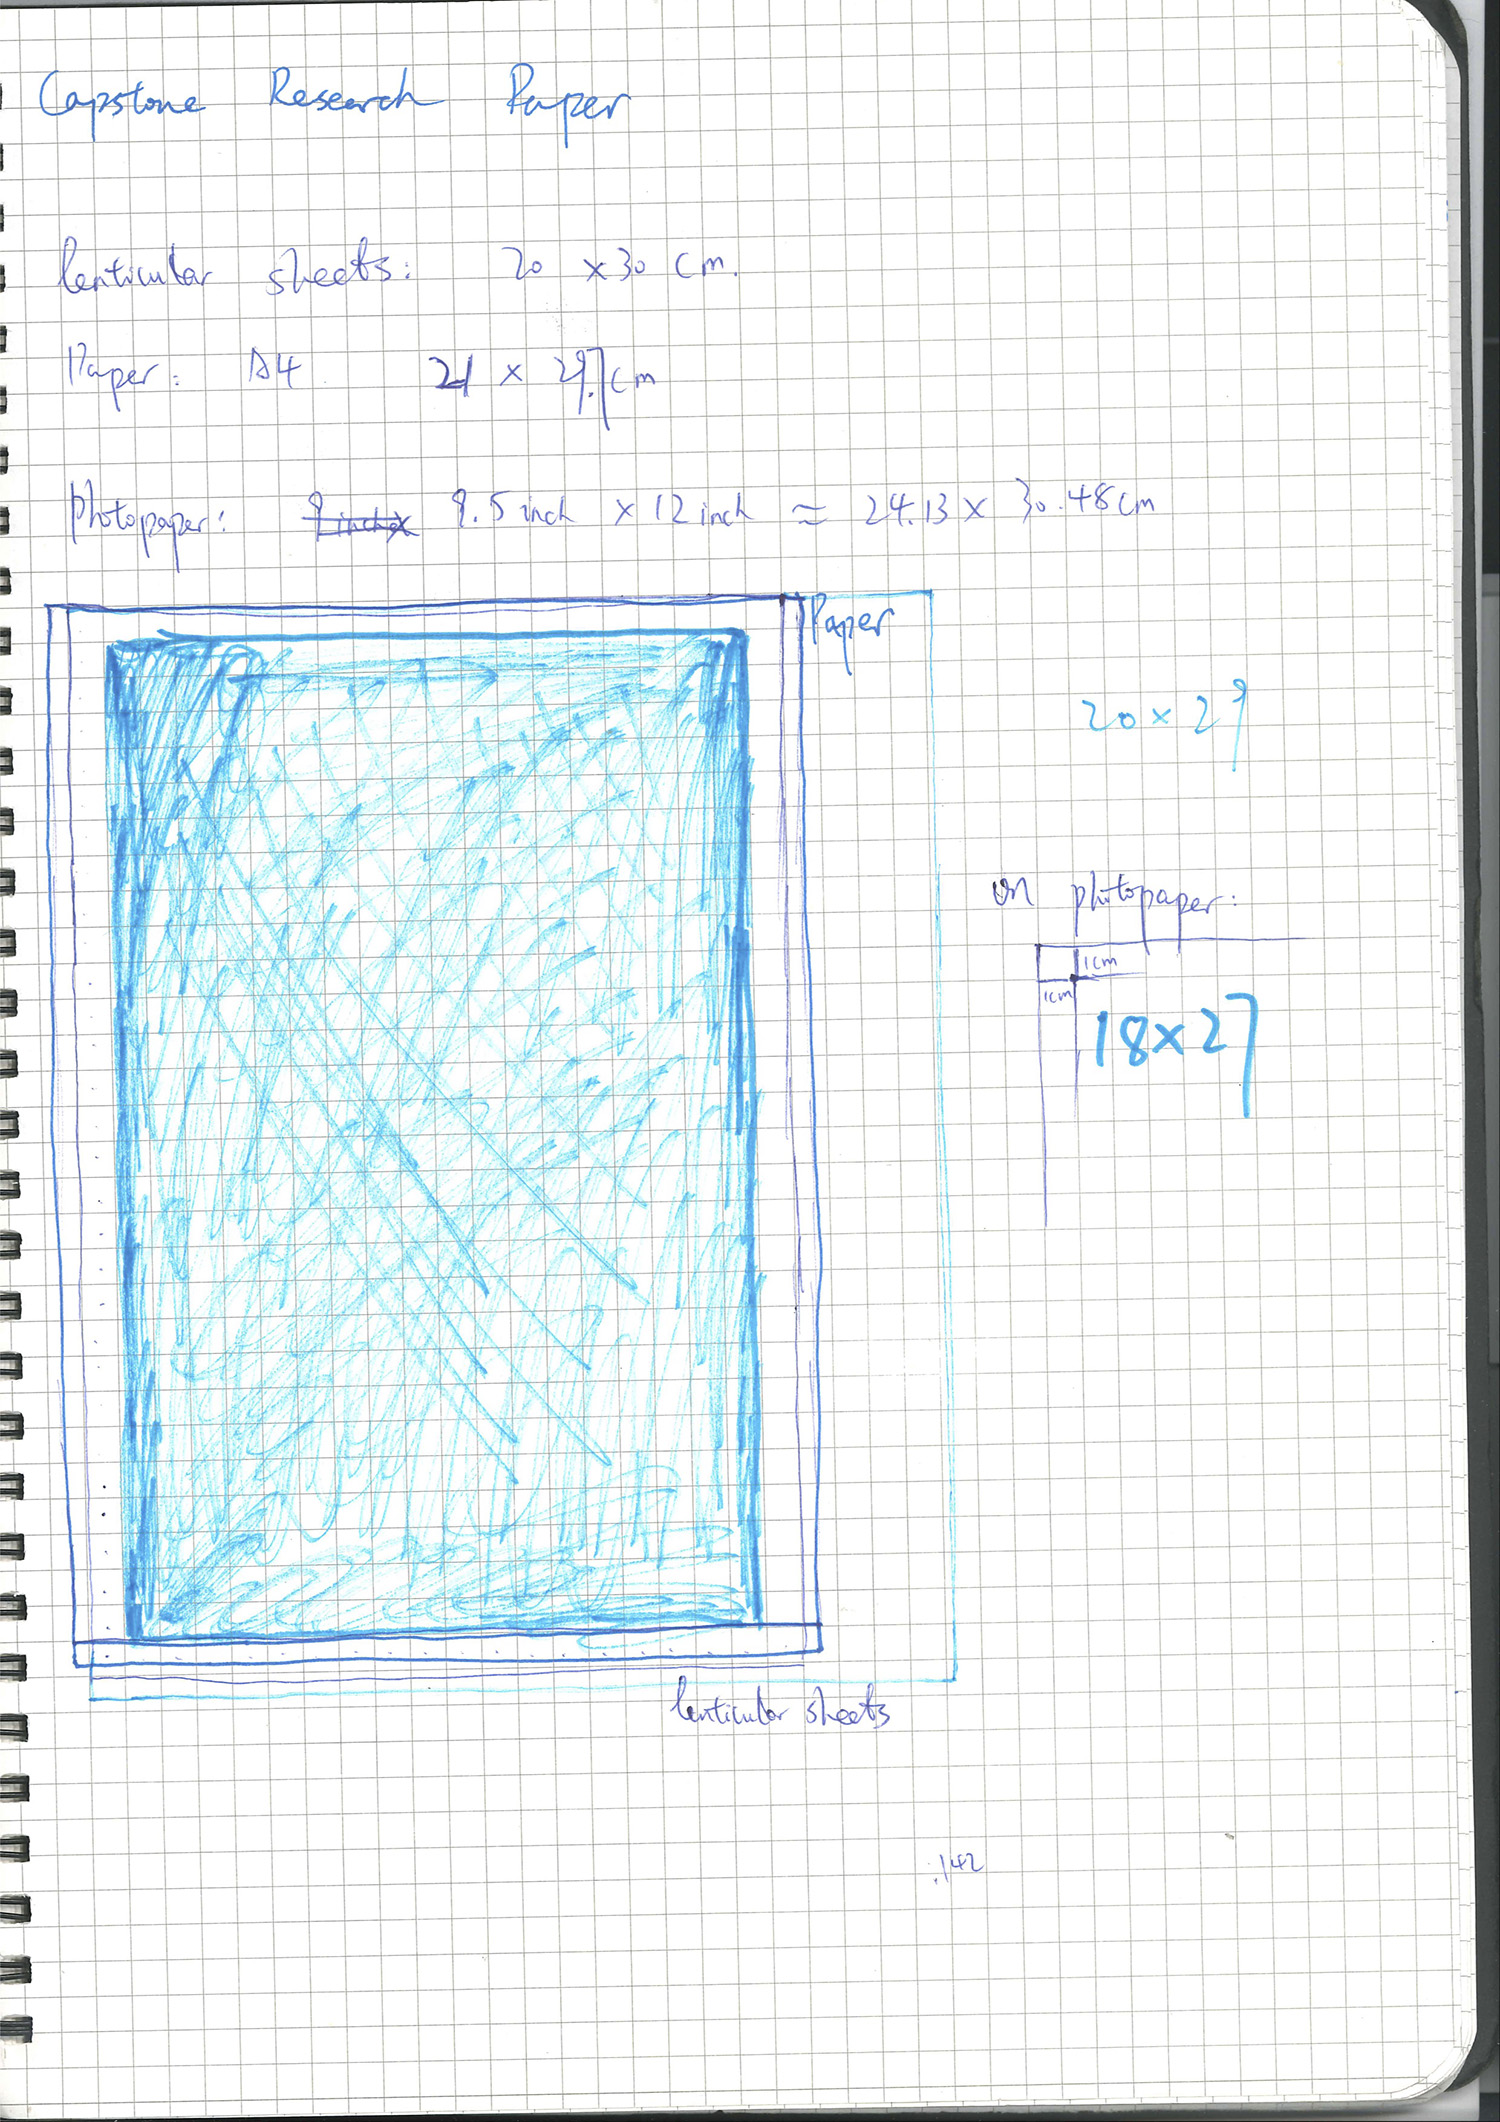 Capstone Research Paper
lenticular sheets: 20 x 30 cm.
Paper: A4 21 x 29.7cm
Photopaper: 9 inch x 9.5 inch x 12 inch ≈ 24.13 x 30.48cm
Paper
20 x 29
on photopaper:
1cm
1cm
18x27
lenticular sheets
.142